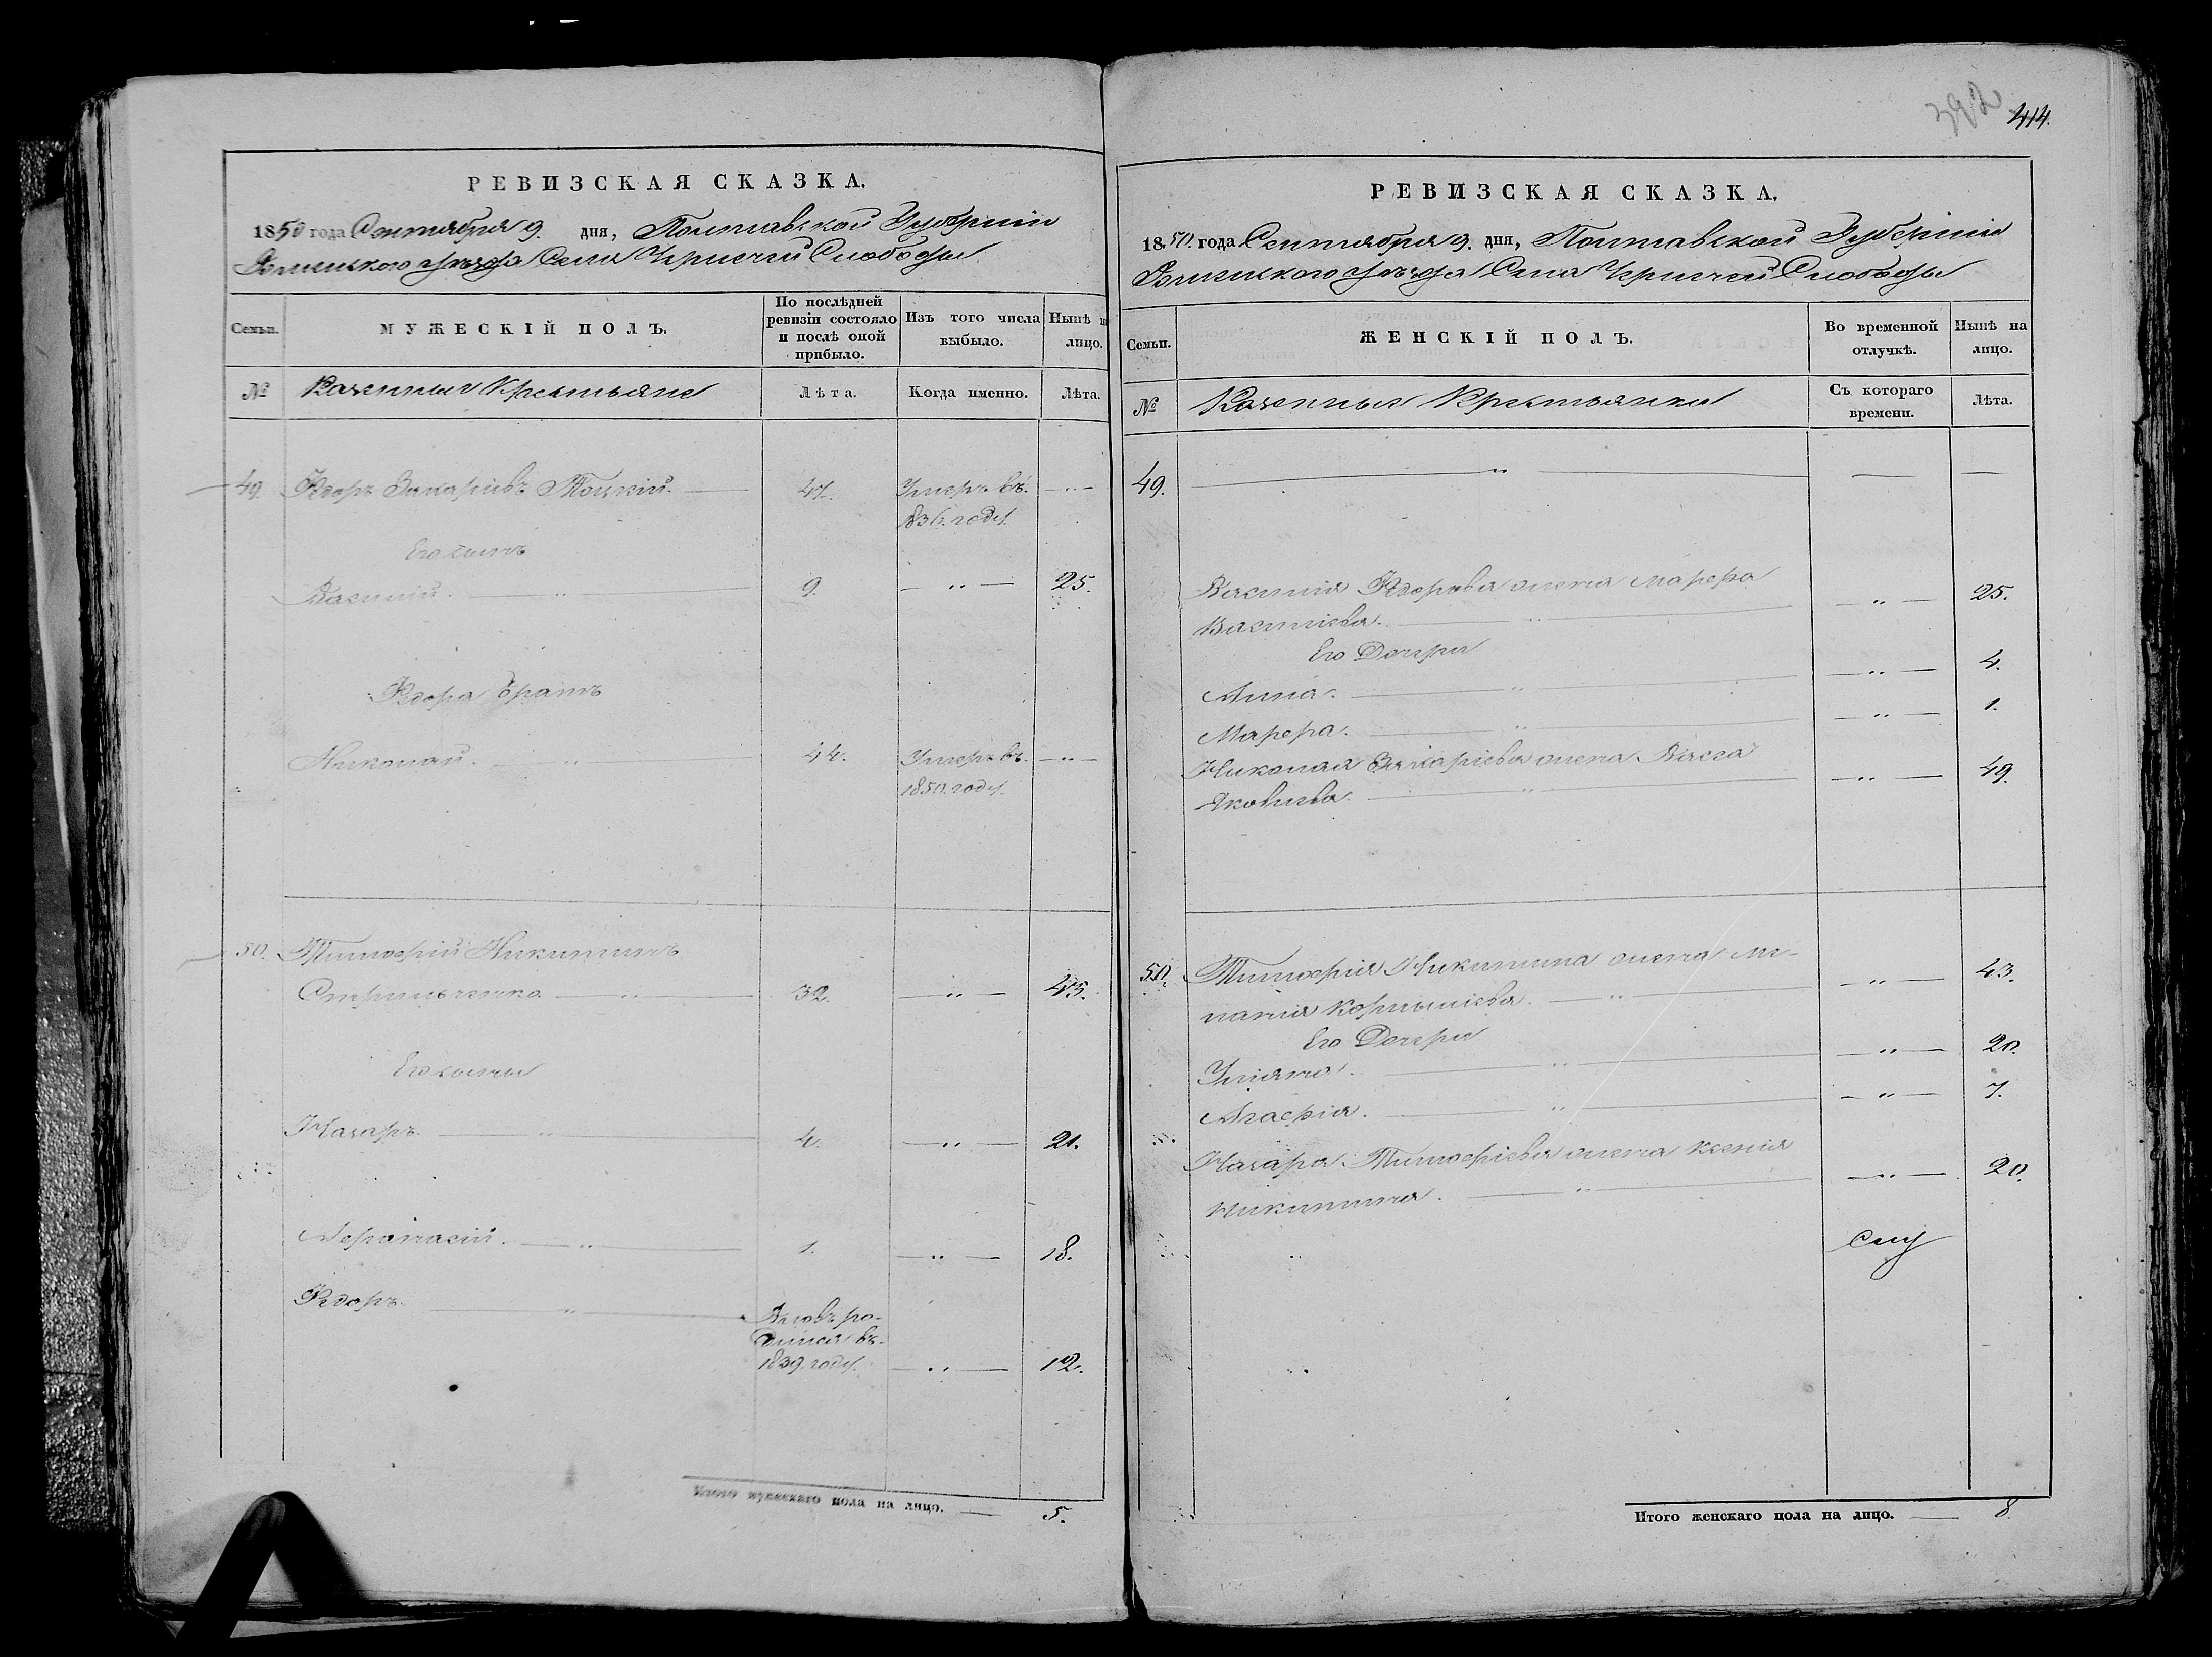 392
414.
РЕВИЗСКАЯ СКАЗКА.
1850 года Сентября 9. дня, Полтавской Губерніи
Роменского уѣзда Села Чернечей Слободы
Семьи.
МУЖЕСКІЙ ПОЛЪ.
По послѣдней ревизіи состояло и послѣ оной прибыло.
Изъ того числа выбыло.
Нынѣ н лицо.
№
Казенные Крестьяне
Лѣта.
Когда именно.
Лѣта.
49. Ѳедоръ Захаріевъ Тоцкій. 47. Умеръ въ — " —
1836. году.
Его сынъ
Василій. — " — 9. — " — 25.
Ѳедора братъ
Николай. — " — 44. Умеръ въ — " —
1850. году.
50. Тимофій Никитинъ
— " — 32. — " — 45.
Его сыны
Назаръ. — " — 4. — " — 21.
Афанасій. — " — 1. — " — 18.
Ѳедоръ. — " — Вновь ро-
дился въ
1839. году. — " — 12.
Итого мужескаго пола на лицо. — 5.
РЕВИЗСКАЯ СКАЗКА.
1850. года Сентября 9. дня, Полтавской Губерніи
Роменского уѣзда Села Чернечей Слободы
Семьи.
ЖЕНСКІЙ ПОЛЪ.
Во временной отлучкѣ.
Нынѣ на лицо.
№
Казенныя Крестьянки
Съ котораго времени.
Лѣта.
49. — " — — —
Василія Ѳедорова жена Марфа
Василіева. — " — — " — 25.
Его Дочери
Анна. — " — — " — 4.
Марфа. — " — — " — 1.
Николая Захаріева жена Васса
Яковлева. — " — — " — 49.
50. Тимофія Никитина жена Ме-
ланія Корниліева. — " — — " — 43.
Его Дочери
Уліяна. — " — — " — 20.
Агафія. — " — — " — 7.
Назара Тимофіева жена Ксенія
Никитина. — " — — " — 20.
Итого женскаго пола на лицо. — 8